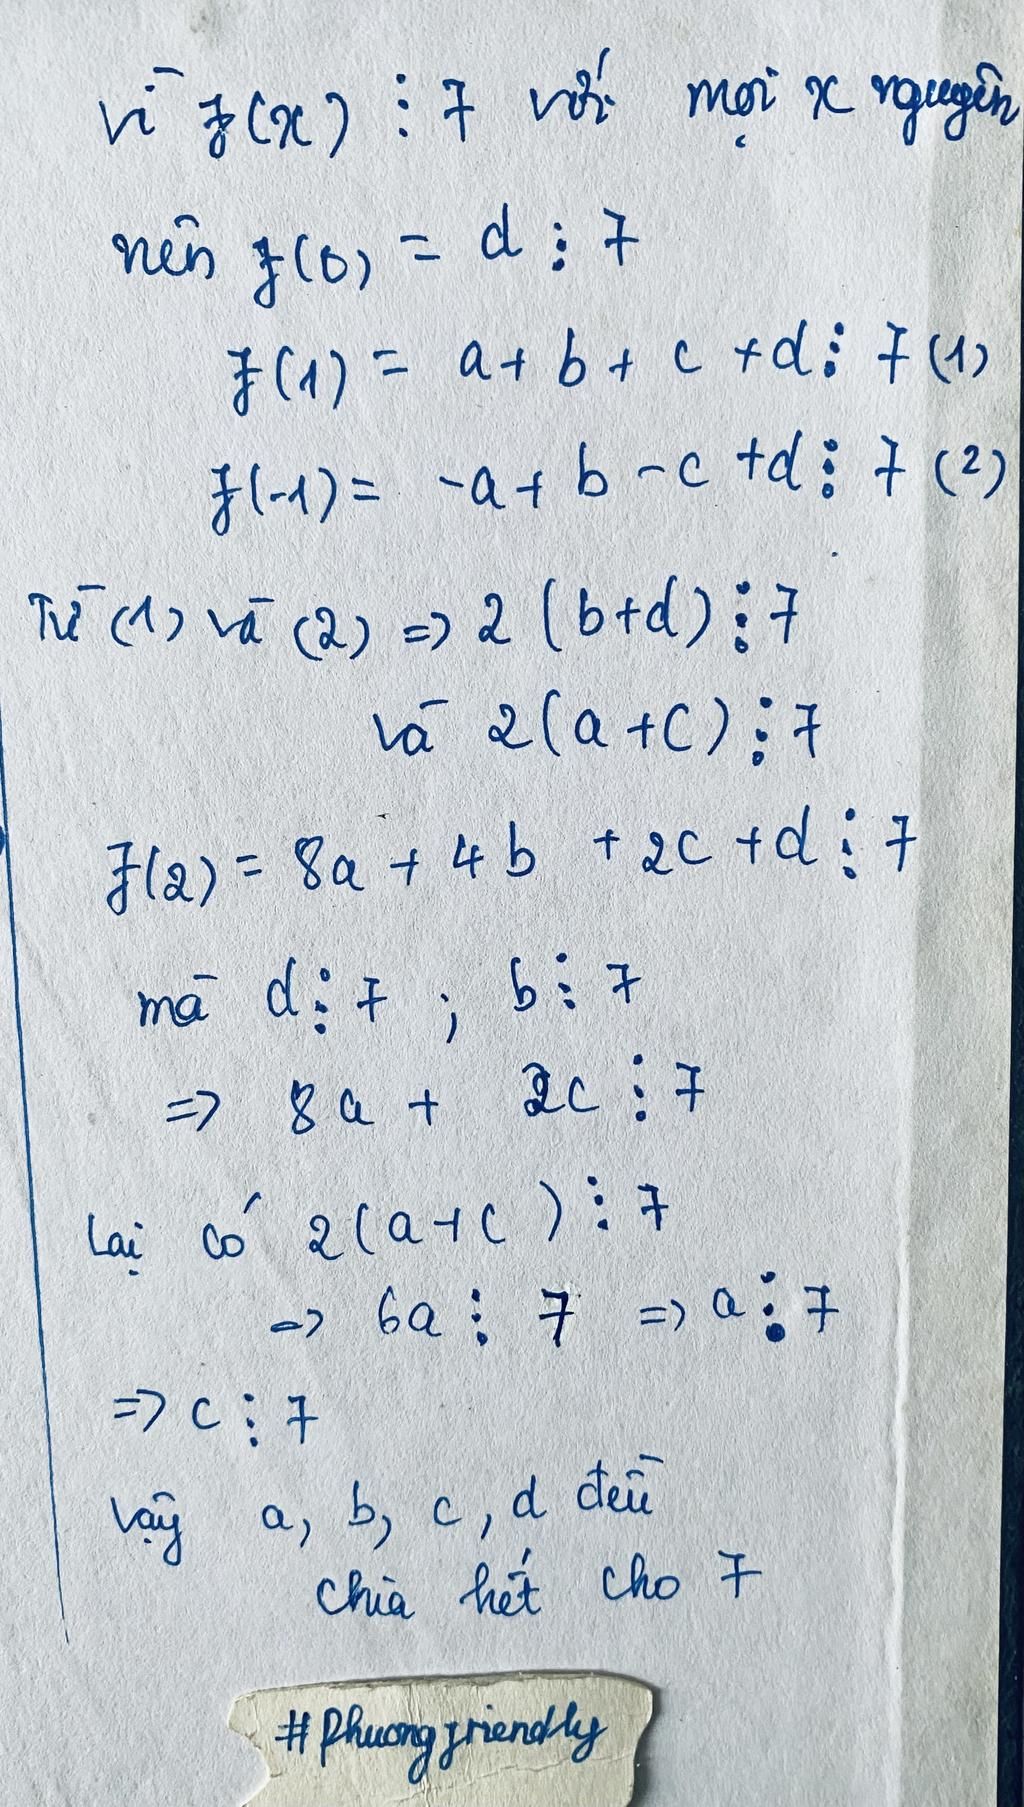 vì f(x) ⋮ 7 với mọi x nguyên
nên f(0) = d ⋮ 7
f(1) = a + b + c + d ⋮ 7 (1)
f(-1) = -a + b - c + d ⋮ 7 (2)
Từ (1) và (2) => 2 (b+d) ⋮ 7
và 2(a+c) ⋮ 7
f(2) = 8a + 4b + 2c + d ⋮ 7
mà d ⋮ 7 ; b ⋮ 7
=> 8a + 2c ⋮ 7
Lại có 2(a+c) ⋮ 7
=> 6a ⋮ 7 => a ⋮ 7
=> c ⋮ 7
Vậy a, b, c, d đều
chia hết cho 7
#Phuongfriendly